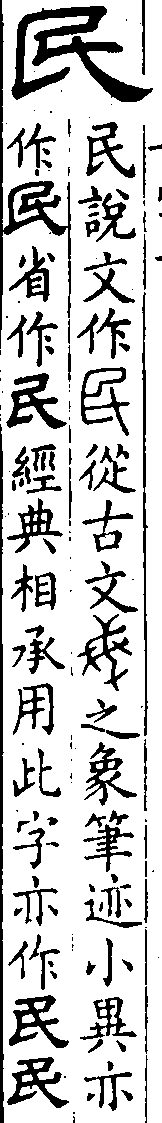 民
民說文作民從古文之象筆迹小異亦
作民省作民經典相承用此字亦作民民